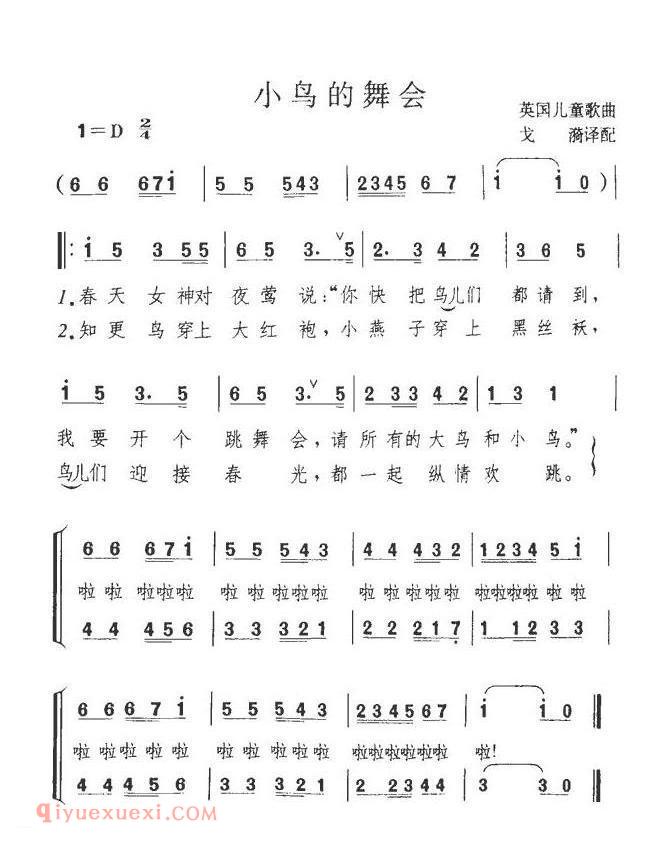 小鸟的舞会
英国儿童歌曲
1=D 2/4
戈 漪译配
(6 6 671̇ | 5 5 543 | 2345 6 7 | 1̇ 1̇ 0)|
‖: 1̇ 5 3 55 | 6 5 3. ∨ 5 | 2. 3 4 2 | 3 6 5 |
1.春天 女神对 夜莺 说:“你快 把鸟儿们 都请到,
2.知更 鸟穿上 大红 袍,小燕 子穿上 黑丝袄,
1̇ 5 3. 5 | 6 5 3. ∨ 5 | 2 33 4 2 | 1 3 1
我要开个 跳舞会,请所有的大鸟和小鸟。”
鸟儿们迎接 春光,都一起 纵情欢 跳。
6 6 6 7 1̇ | 5 5 5 4 3 | 4 4 4 3 2 | 1 2 3 4 5 1̇
啦 啦 啦啦啦 啦 啦 啦啦啦 啦 啦 啦啦啦 啦啦啦啦 啦 啦
4 4 4 5 6 | 3 3 3 2 1 | 2 2 2 1 7̣ | 1 1 2 3 3
6 6 6 7 1̇ | 5 5 5 4 3 | 2 3 4 5 6 7 | 1̇ 1̇ 0 ‖
啦 啦 啦 啦 啦 啦 啦 啦 啦 啦 啦啦啦啦啦啦 啦!
4 4 4 5 6 | 3 3 3 2 1 | 2 2 3 4 4 | 3 3 0 ‖
qiyuexuexi.com(7月学习网)